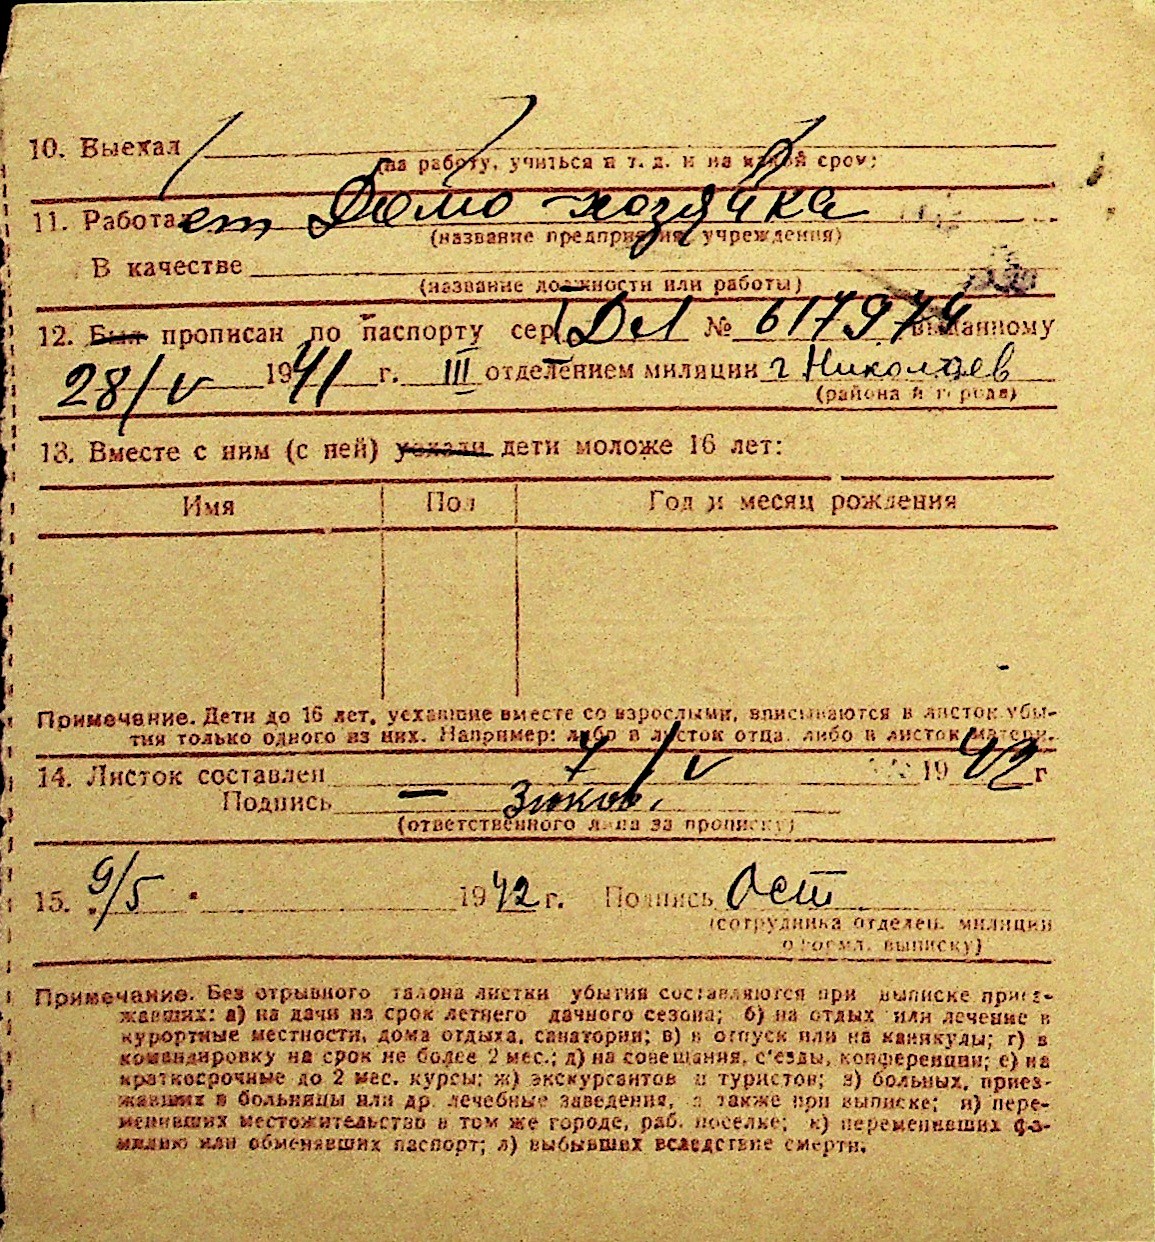 10. Выехал
(на работу, учиться и т. д. и на какой срок)
11. Работает Домо-хозяйка
(название предприятия, учреждения)
В качестве
(название должности или работы)
12. Был прописан по паспорту сер. ДЛ № 617974 выданному
28/V 1941 г. III отделением милиции г Николаев
(района и города)
13. Вместе с ним (с ней) уехали дети моложе 16 лет:
Имя Пол Год и месяц рождения
Примечание. Дети до 16 лет, уехавшие вместе со взрослыми, вписываются в листок убы-
тия только одного из них. Например: либо в листок отца, либо в листок матери.
14. Листок составлен 7/V 1942 г
Подпись
(ответственного лица за прописку)
15. 9/5 1942 г. Подпись Ост
(сотрудника отделен. милиции
оформл. выписку)
Примечание. Без отрывного талона листки убытия составляются при выписке приез-
жавших: а) на дачи на срок летнего дачного сезона; б) на отдых или лечение в
курортные местности, дома отдыха, санатории; в) в отпуск или на каникулы; г) в
командировку на срок не более 2 мес.; д) на совещания, с'езды, конференции; е) на
краткосрочные до 2 мес. курсы; ж) экскурсантов и туристов; з) больных, приез-
жавших в больницы или др. лечебные заведения, а также при выписке; и) пере-
менивших местожительство в том же городе, раб. поселке; к) переменивших фа-
милию или обменявших паспорт; л) выбывших вследствие смерти.